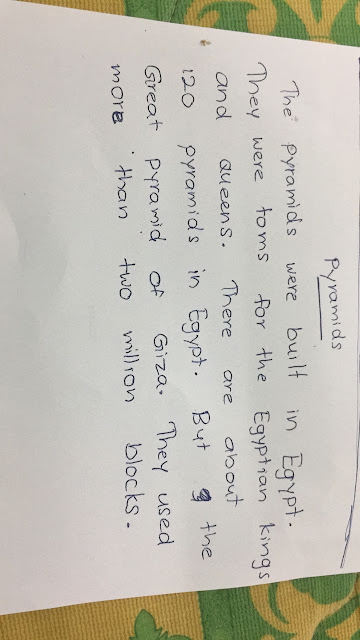 Pyramids
The pyramids were built in Egypt.
They were toms for the Egyptian kings
and queens. There are about
120 pyramids in Egypt. But the
Great pyramid of Giza. They used
more than two million blocks.